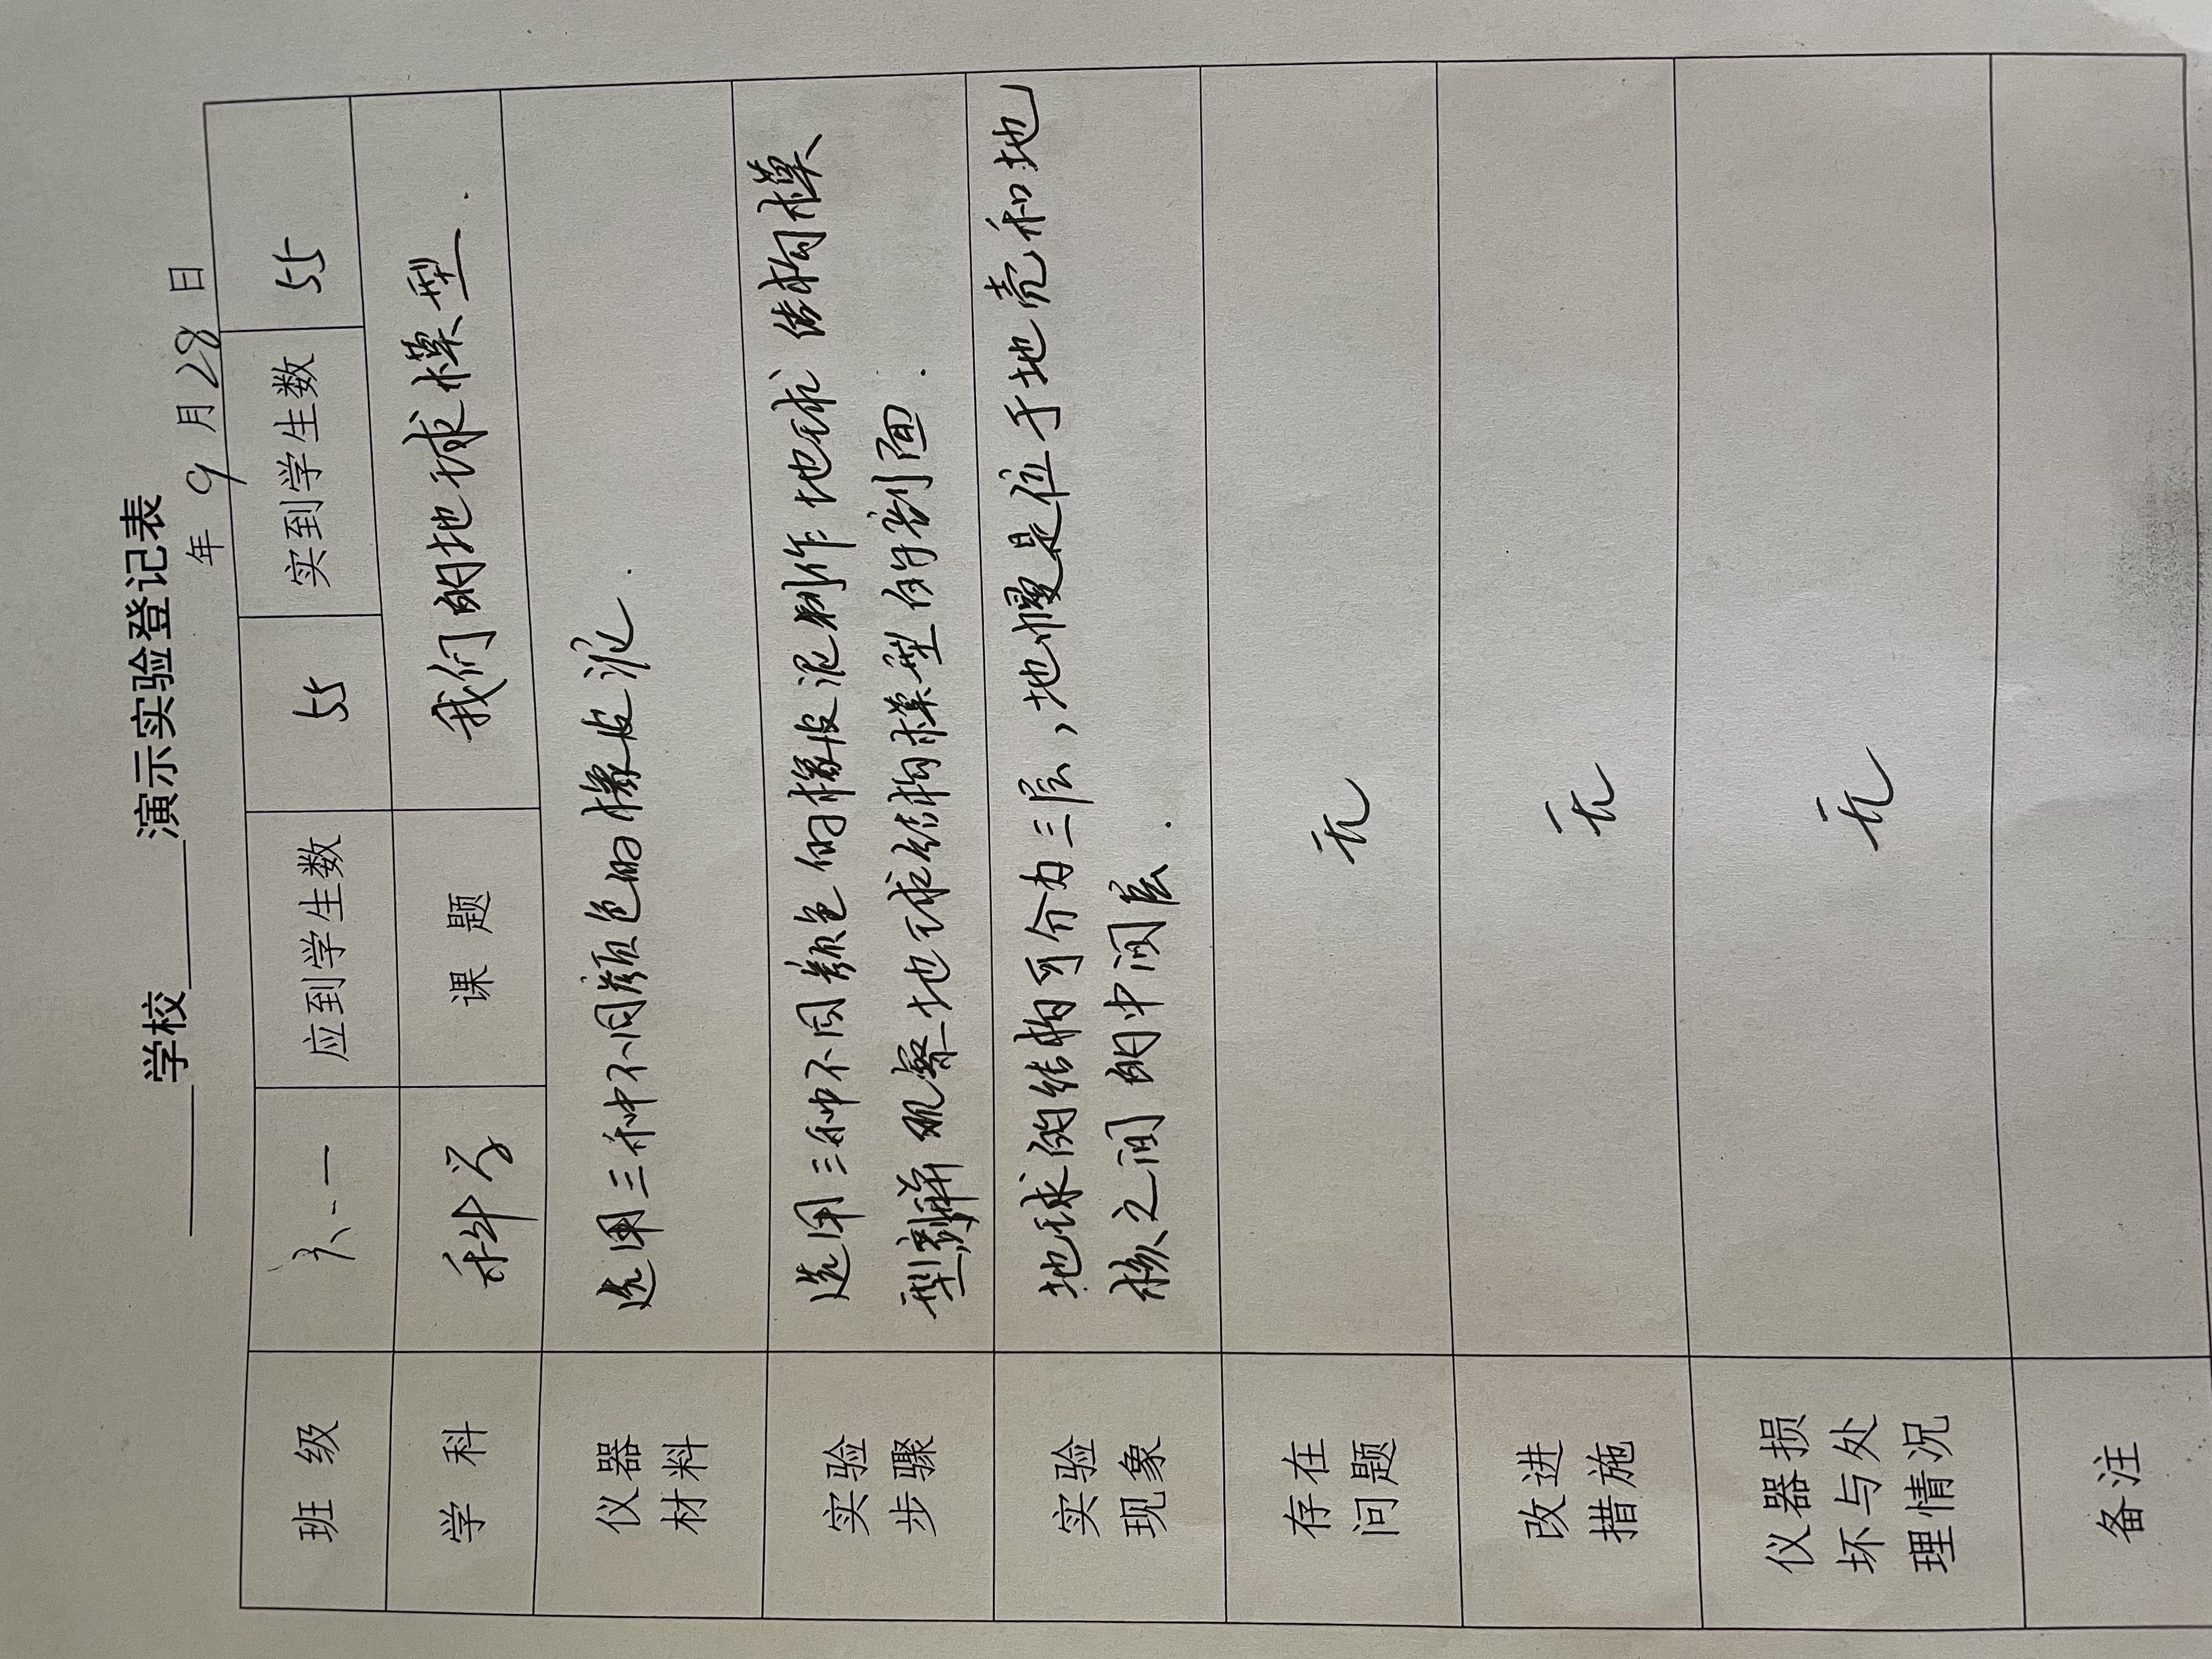 学校 演示实验登记表
年 9 月 28 日
班 级 六.一 应到学生数 55 实到学生数 55
学 科 科学 课 题 我们的地球模型.
仪器
材料
选用三种不同颜色的橡皮泥.
实验
步骤
选用三种不同颜色的橡皮泥制作地球结构模
型 观察地球结构模型的剖面.
实验
现象
地球的结构可分为三层,地幔是位于地壳和地
核之间的中间层.
存在
问题
无
改进
措施
无
仪器损
坏与处
理情况
无
备注